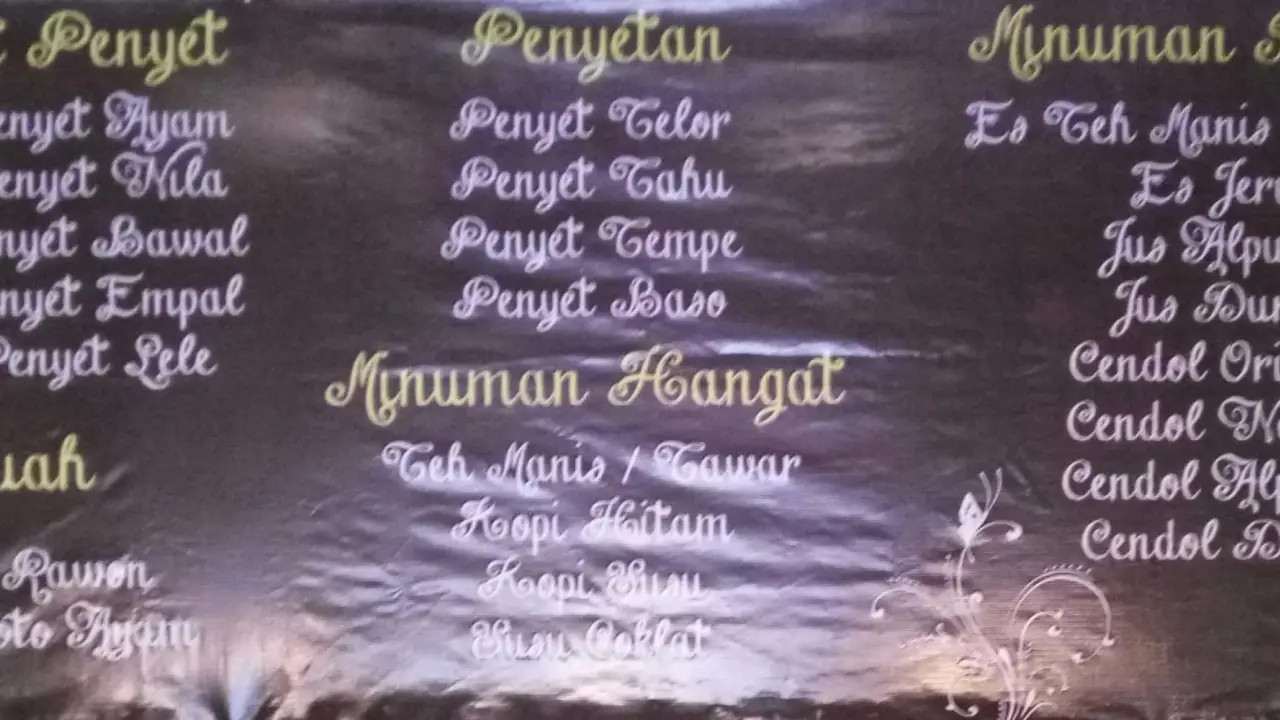 Penyet
enyet Ayam
enyet Nila
nyet Bawal
nyet Empal
Penyet Lele
uah
Rawon
oto Ayam
Penyetan
Penyet Telor
Penyet Tahu
Penyet Tempe
Penyet Baso
Minuman Hangat
Teh Manis / Tawar
Kopi Hitam
Kopi Susu
Susu Coklat
Minuman
Es Teh Manis
Es Jer
Jus Alpu
Jus Dur
Cendol Ori
Cendol N
Cendol Alp
Cendol D